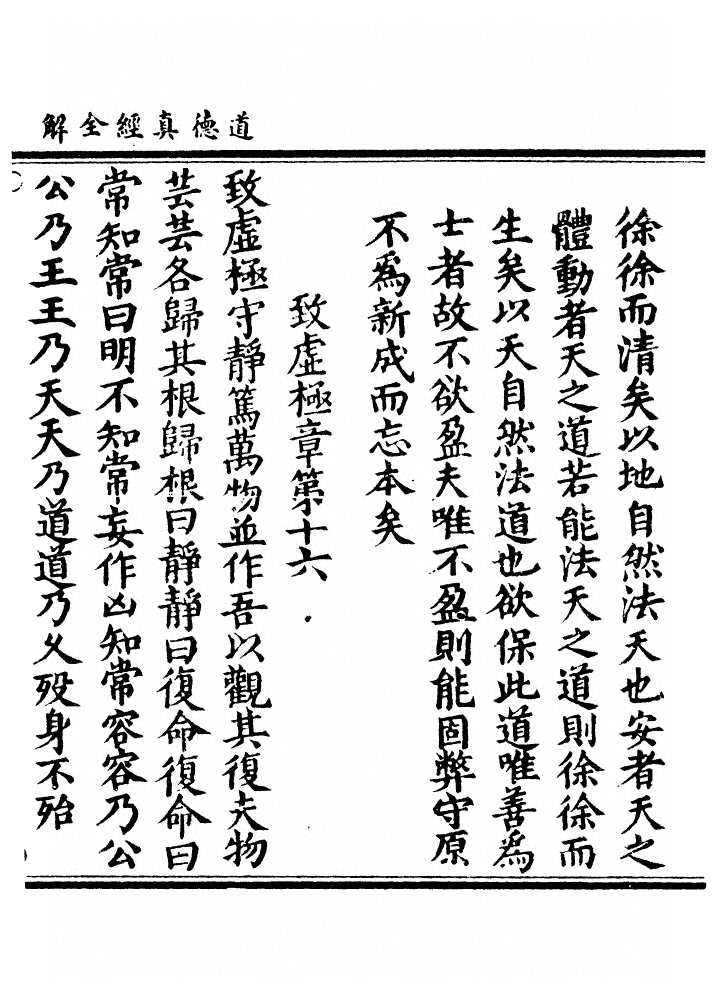 道德真經全解
徐徐而清矣以地自然法天也安者天之
體動者天之道若能法天之道則徐徐而
生矣以天自然法道也欲保此道唯善為
士者故不欲盈夫唯不盈則能固弊守原
不為新成而忘本矣
致虛極章第十六
致虛極守靜篤萬物並作吾以觀其復夫物
芸芸各歸其根歸根曰靜靜曰復命復命曰
常知常曰明不知常妄作凶知常容容乃公
公乃王王乃天天乃道道乃久歿身不殆